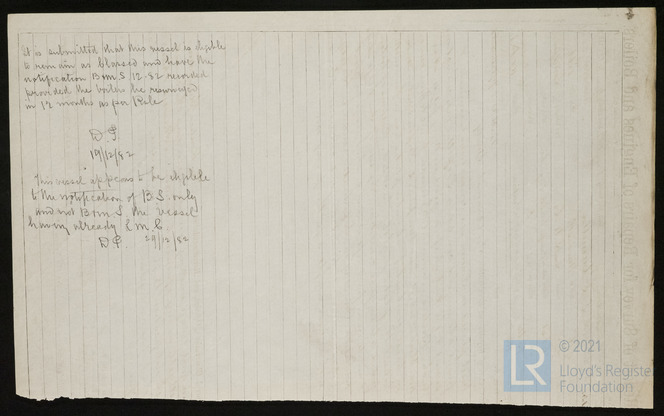 It is submitted that this vessel is eligible
to remain as classed and have the
notification B&MS 12-82 recorded
provided the boilers be resurveyed
in 12 months as per Rule
19/12/82
This vessel appears to be eligible
to the notification of BS. only
and not B&MS. the vessel
having already LMC.
29/12/82
LR
© 2021
Lloyd's Register
Foundation